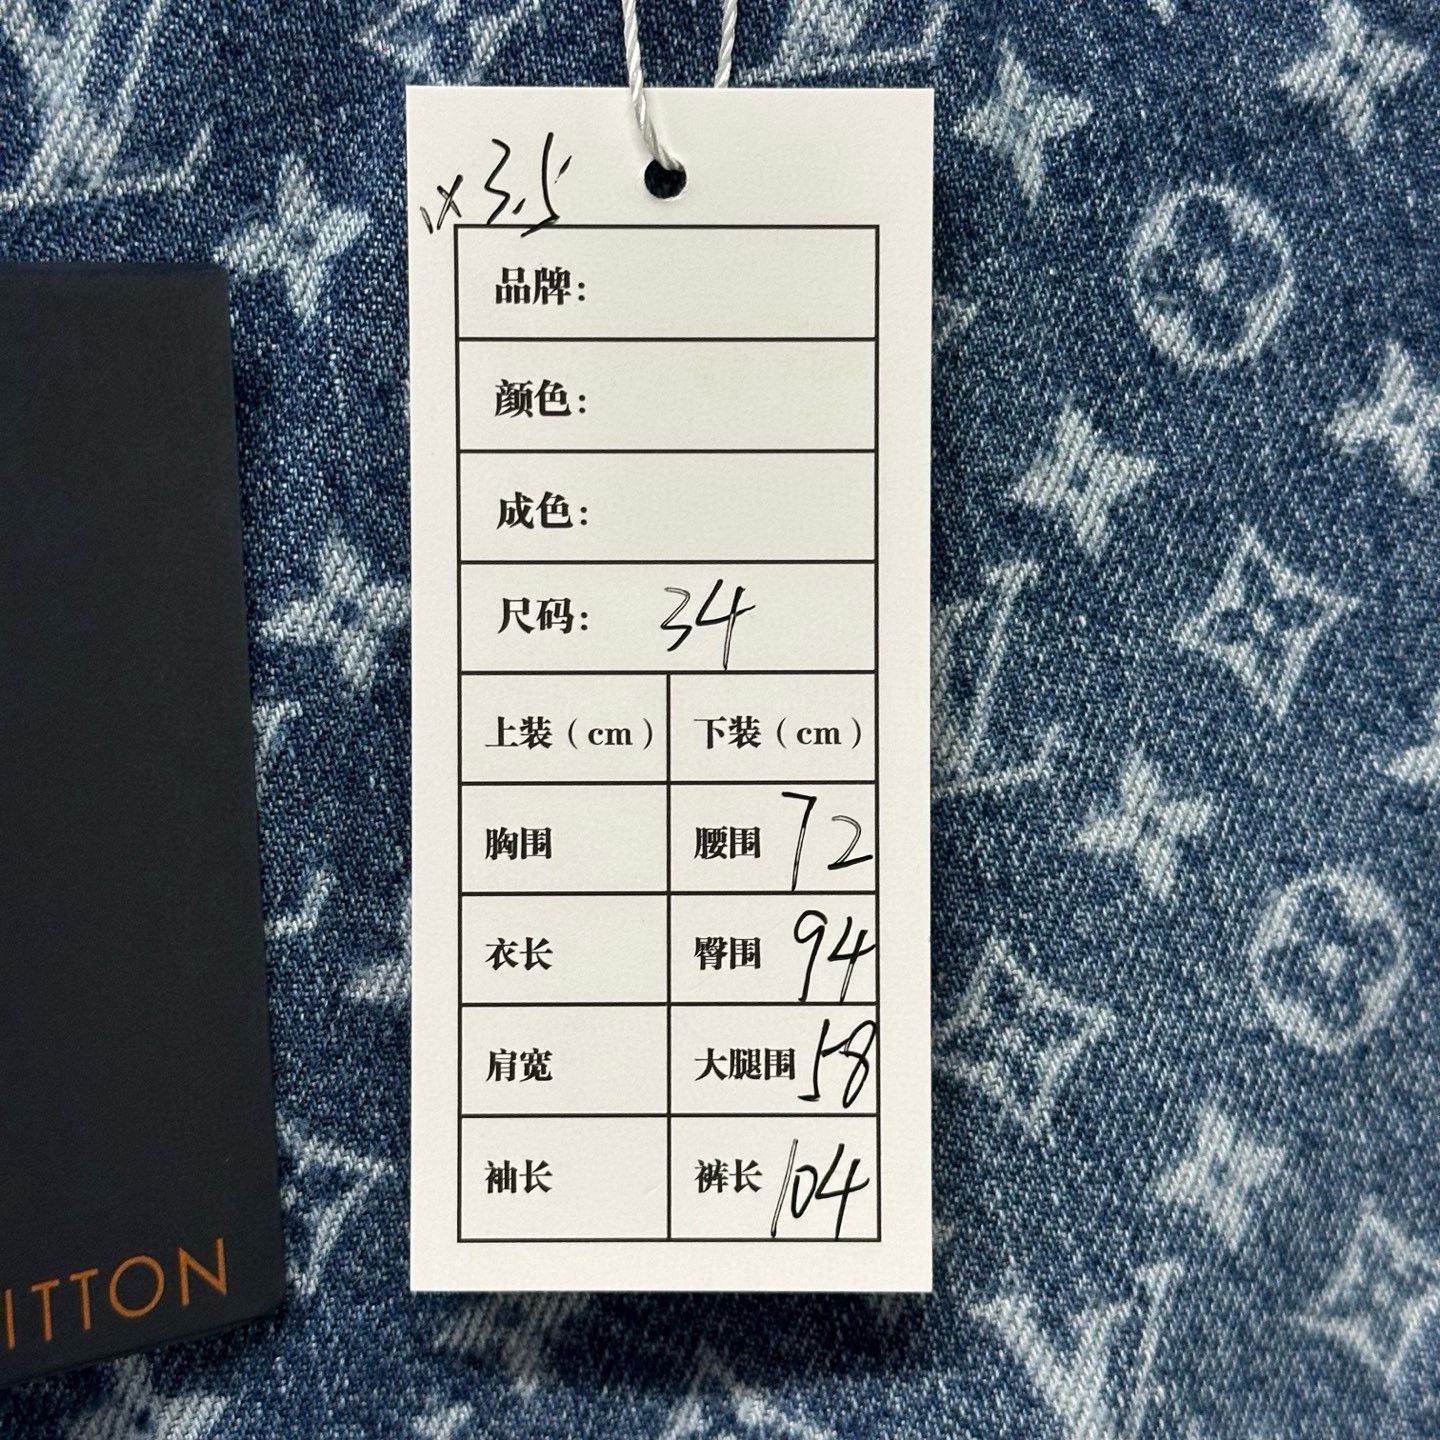 x 3.5
品牌:
颜色:
成色:
尺码: 34
上装（cm） 下装（cm）
胸围 腰围 72
衣长 臀围 94
肩宽 大腿围 58
袖长 裤长 104
ITTON